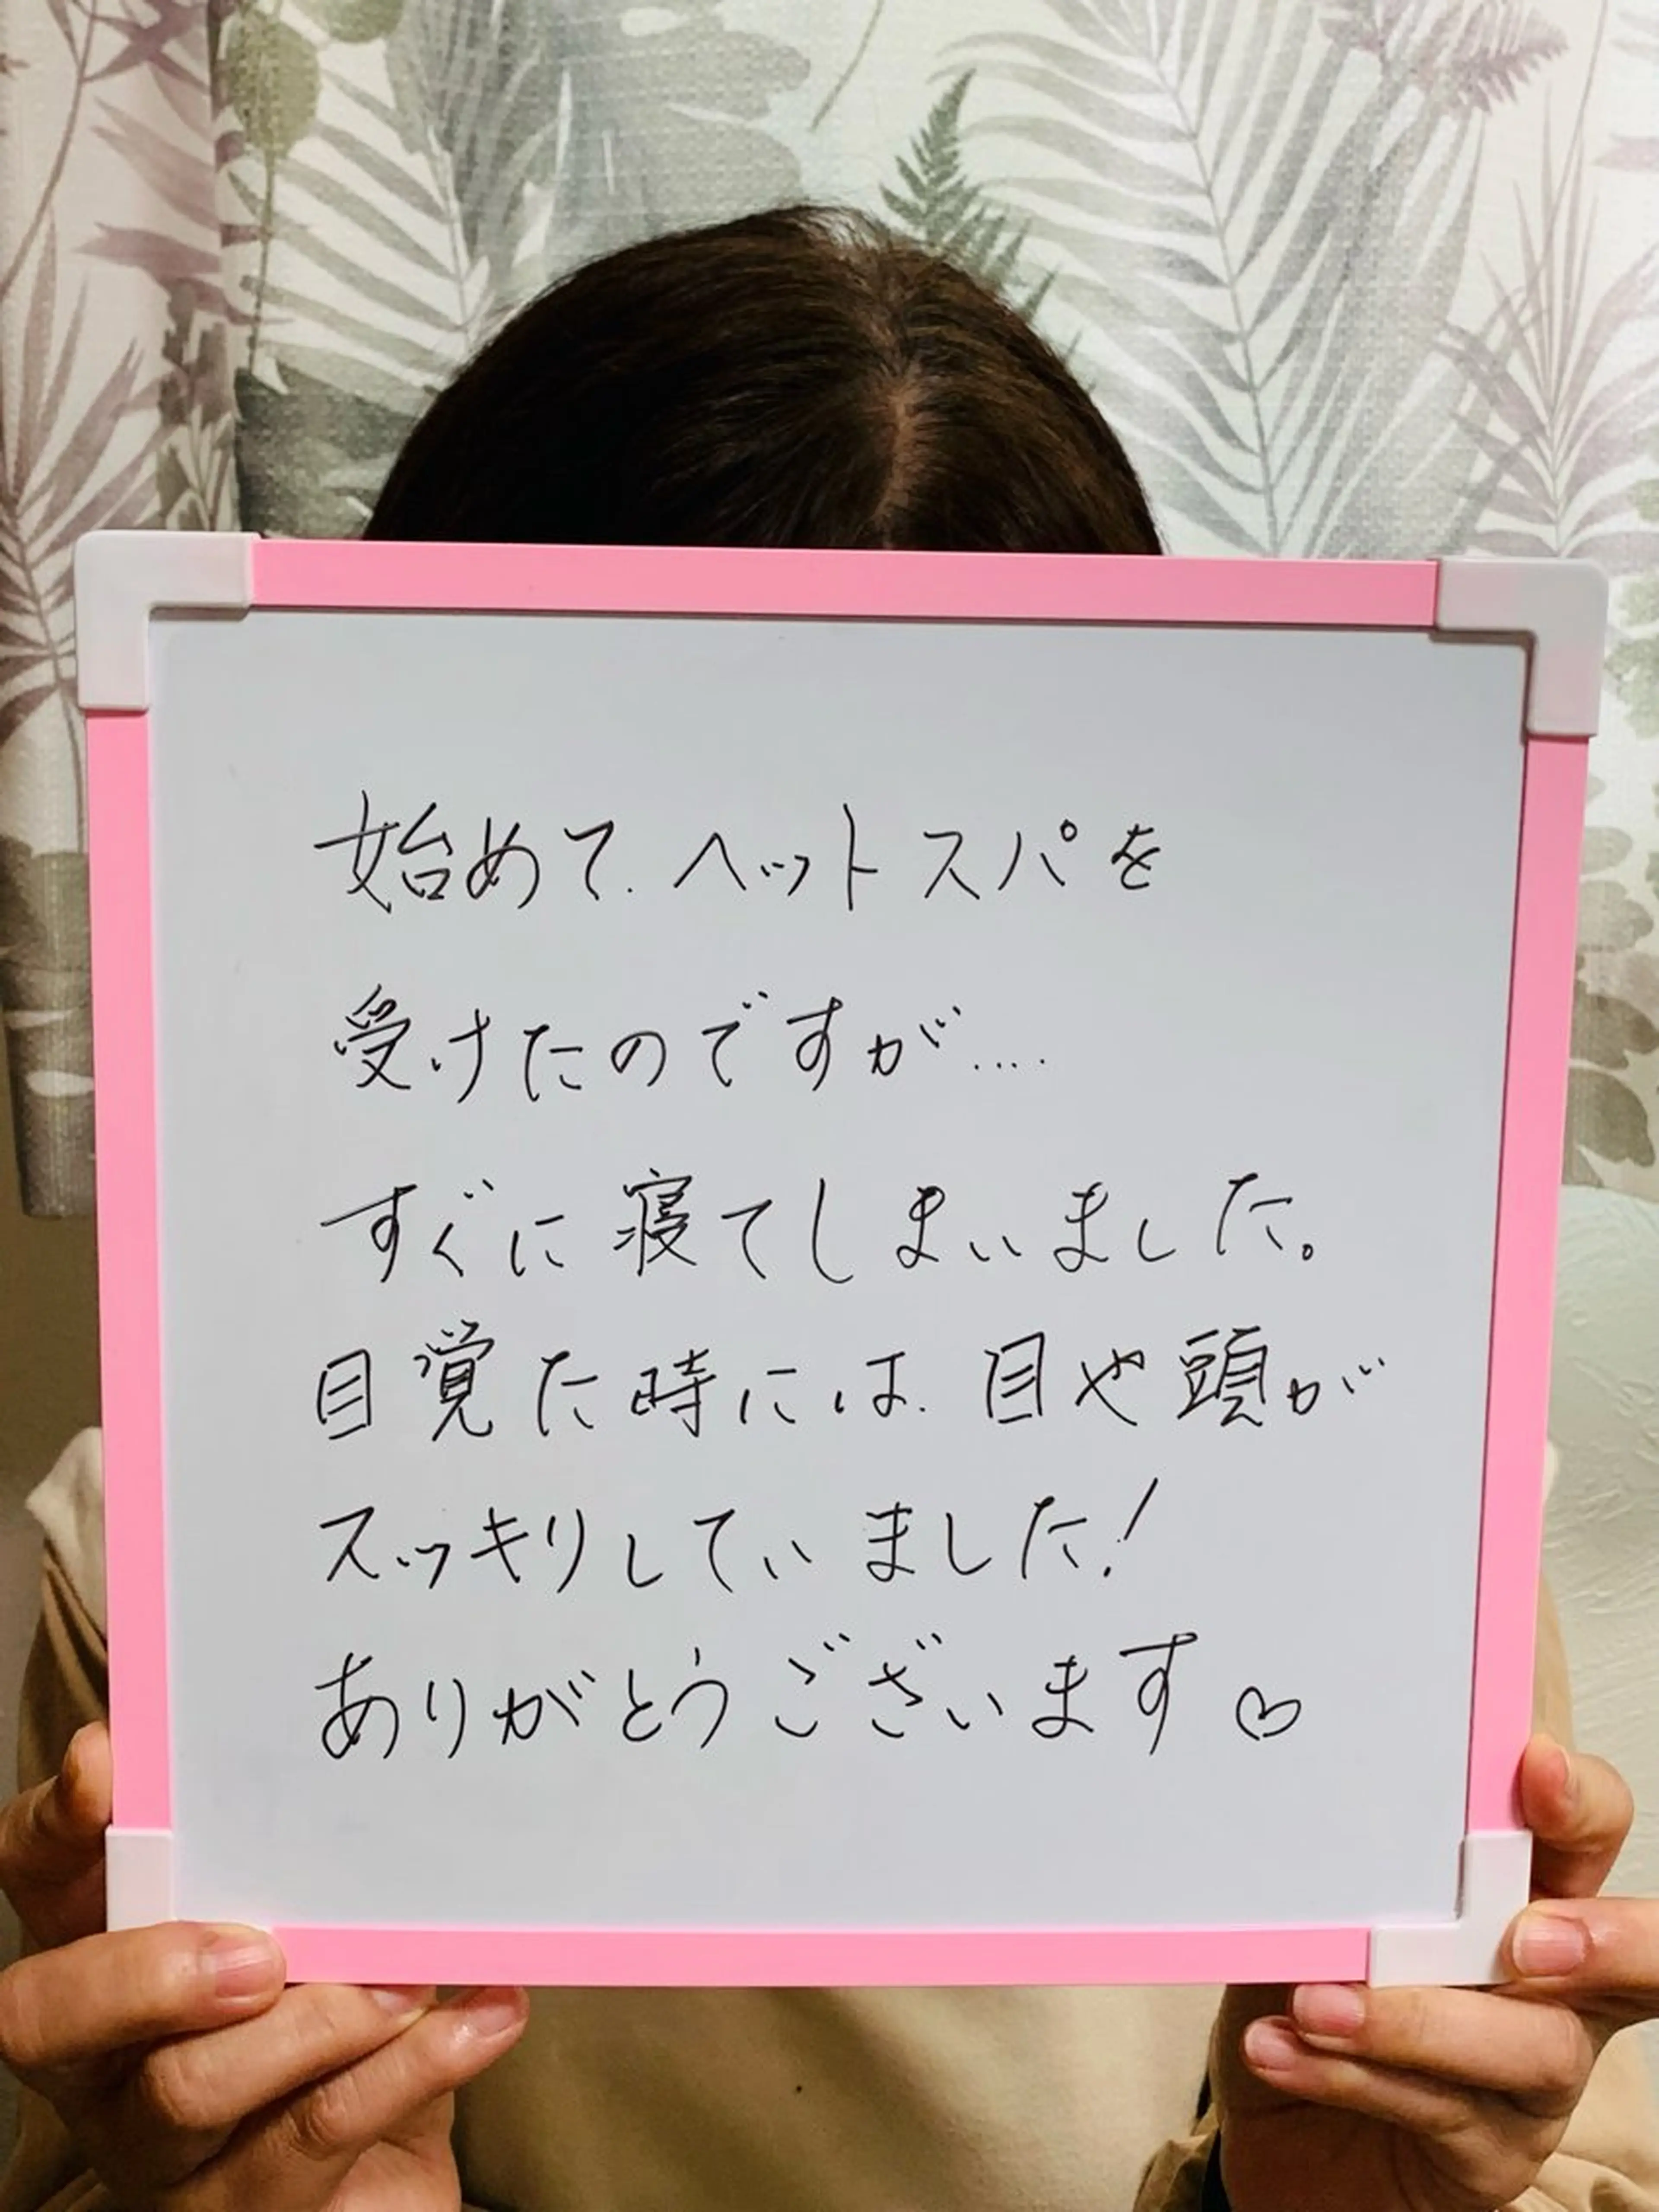 始めて.ヘットスパを
受けたのですが....
すぐに寝てしまいました。
目覚た時には.目や頭が
スッキリしていました!
ありがとうございます♡